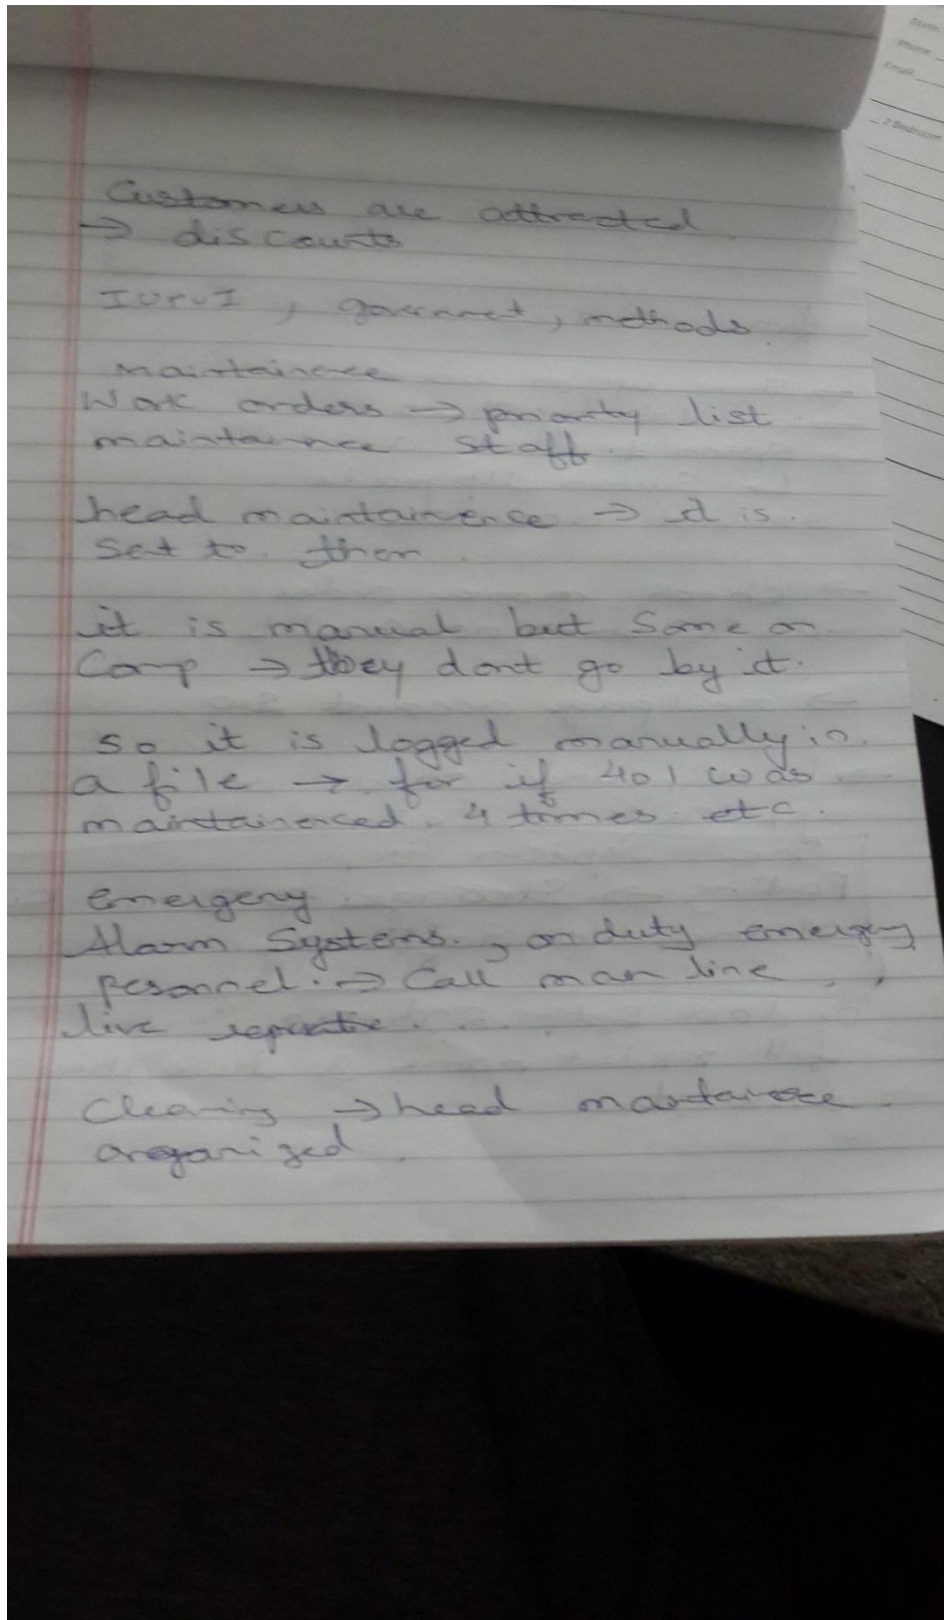 Customers are attracted
→ discounts
IUPUI, governmet, methods.
maintainence
Work orders → priority list
maintainence staff.
head maintainence → it is.
Set to them.
it is manual but some on
Comp → they dont go by it.
so it is logged manually in.
a file → for if 401 was
maintainenced. 4 times etc.
emergeny
Alarm Systems., on duty emergey
pesonnel. → Call man line,,
live
Cleaning → head maintainece.
organized.
State
Phone
Email
2 Bedroom